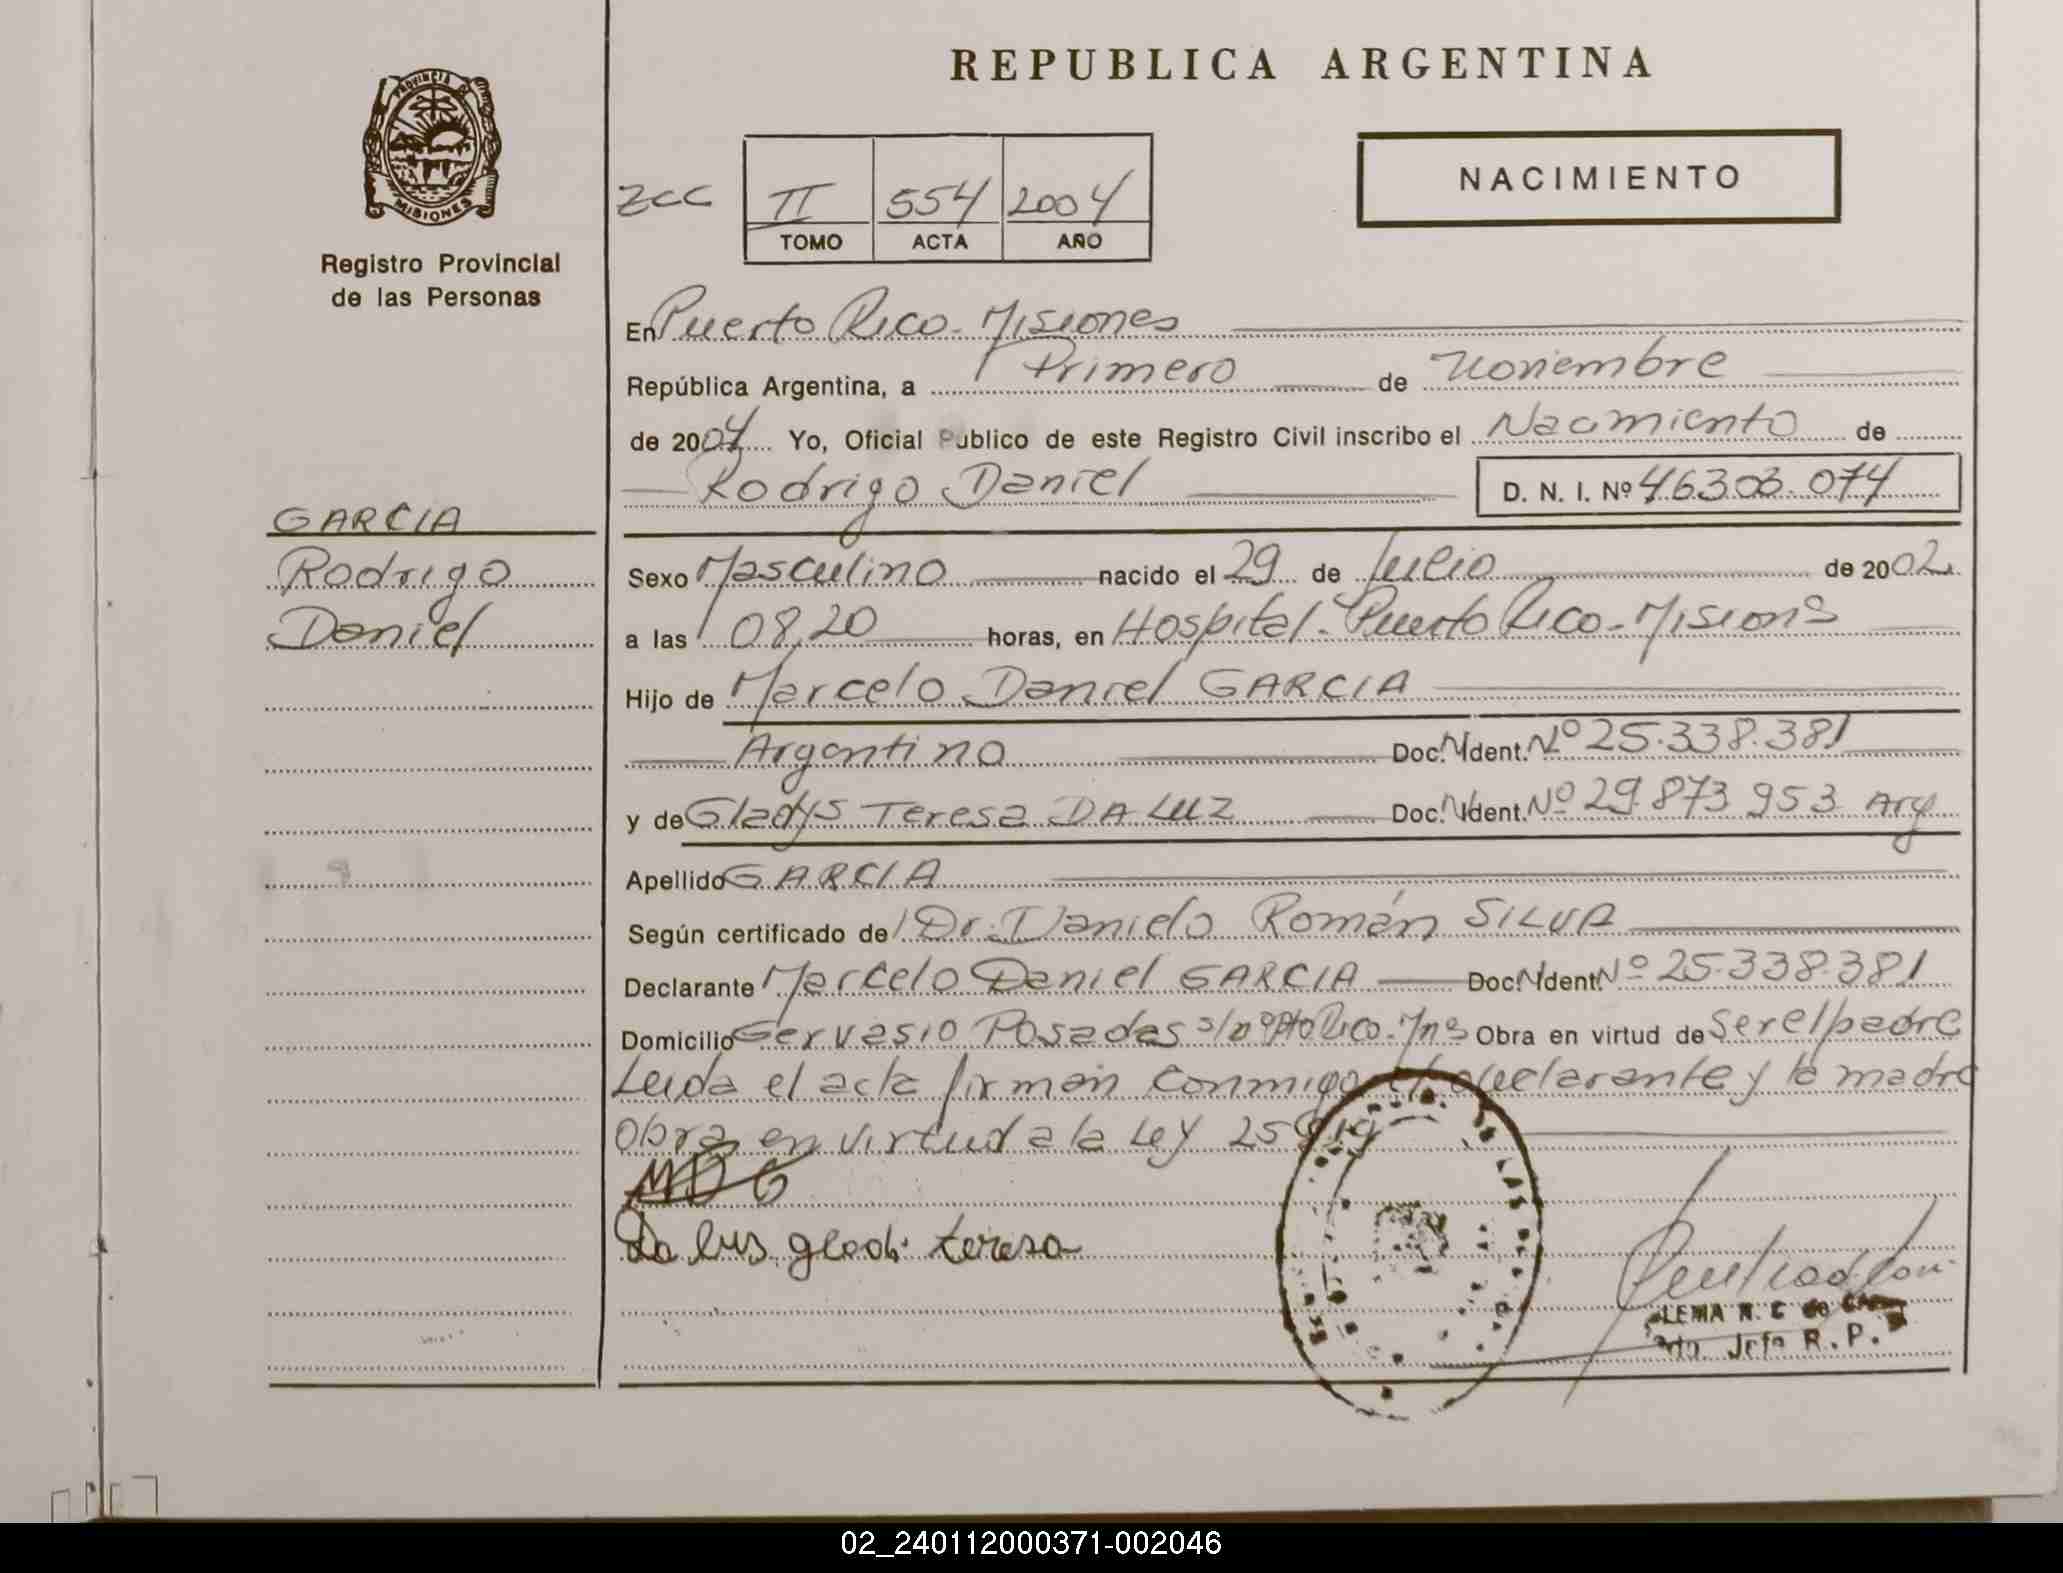 REPUBLICA ARGENTINA
PROVINCIA DE MISIONES
Registro Provincial
de las Personas
NACIMIENTO
ZCC II 554 2004
TOMO ACTA AÑO
En Puerto Rico - Misiones
República Argentina, a Primero de Noviembre
de 2004 Yo, Oficial Publico de este Registro Civil inscribo el Nacimiento de
Rodrigo Daniel D. N. I. Nº 46.303.074
GARCIA
Rodrigo
Daniel
Sexo Masculino nacido el 29 de Julio de 2002
a las 08,20 horas, en Hospital - Puerto Rico - Misions
Hijo de Marcelo Daniel GARCIA
Argentino Doc. N Ident. Nº 25.338.381
y de Gladys Teresa DA LUZ Doc. N Ident. Nº 29.873.953 Arg
Apellido GARCIA
Según certificado de Dr. Danielo Román SILVA
Declarante Marcelo Daniel GARCIA Doc. N Ident. Nº 25.338.381
Domicilio Gervasio Posadas s/nº Pto Rico - Mns Obra en virtud de ser el padre
Leida el acta firman conmigo declarante y la madre
Obra en virtud a la Ley
MDG
Da lus teresa
LEMA N. C de
Jefa R. P.
02_240112000371-002046